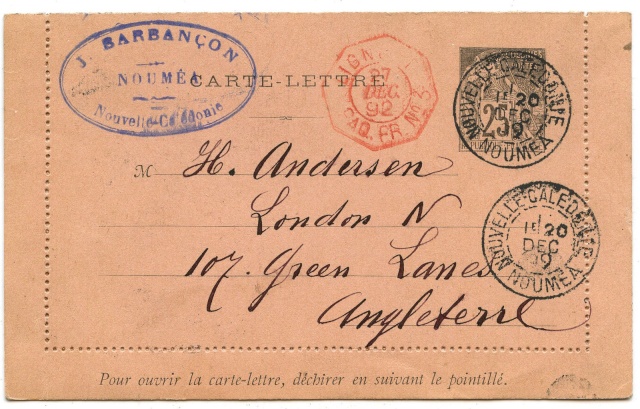 J. BARBANÇON
NOUMÉA
Nouvelle-Calédonie
CARTE-LETTRE
LIGNE
27
DEC.
92
PAQ. FR. Nº 3
25
NOUVELLE-CALEDONIE
1E 20
DEC
92
NOUMEA
NOUVELLE-CALEDONIE
1E 20
DEC
92
NOUMEA
M H. Andersen
London N
107. Green Lanes
Angleterre
Pour ouvrir la carte-lettre, déchirer en suivant le pointillé.